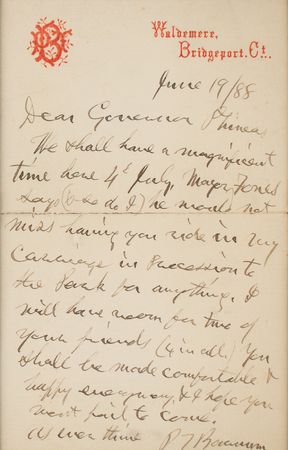 PTB
Waldemere,
Bridgeport, Ct.
June 19/88
Dear Governor Phineas
We shall have a magnificent
time here 4th July, Mayor
says (& so do I) he would not
miss having you ride in my
carriage in Procession to
the Park for anything. I
will have room for two of
your friends (4 in all) You
shall be made comfortable &
happy everyway, & I hope you
won't fail to come.
As ever thine P T Barnum